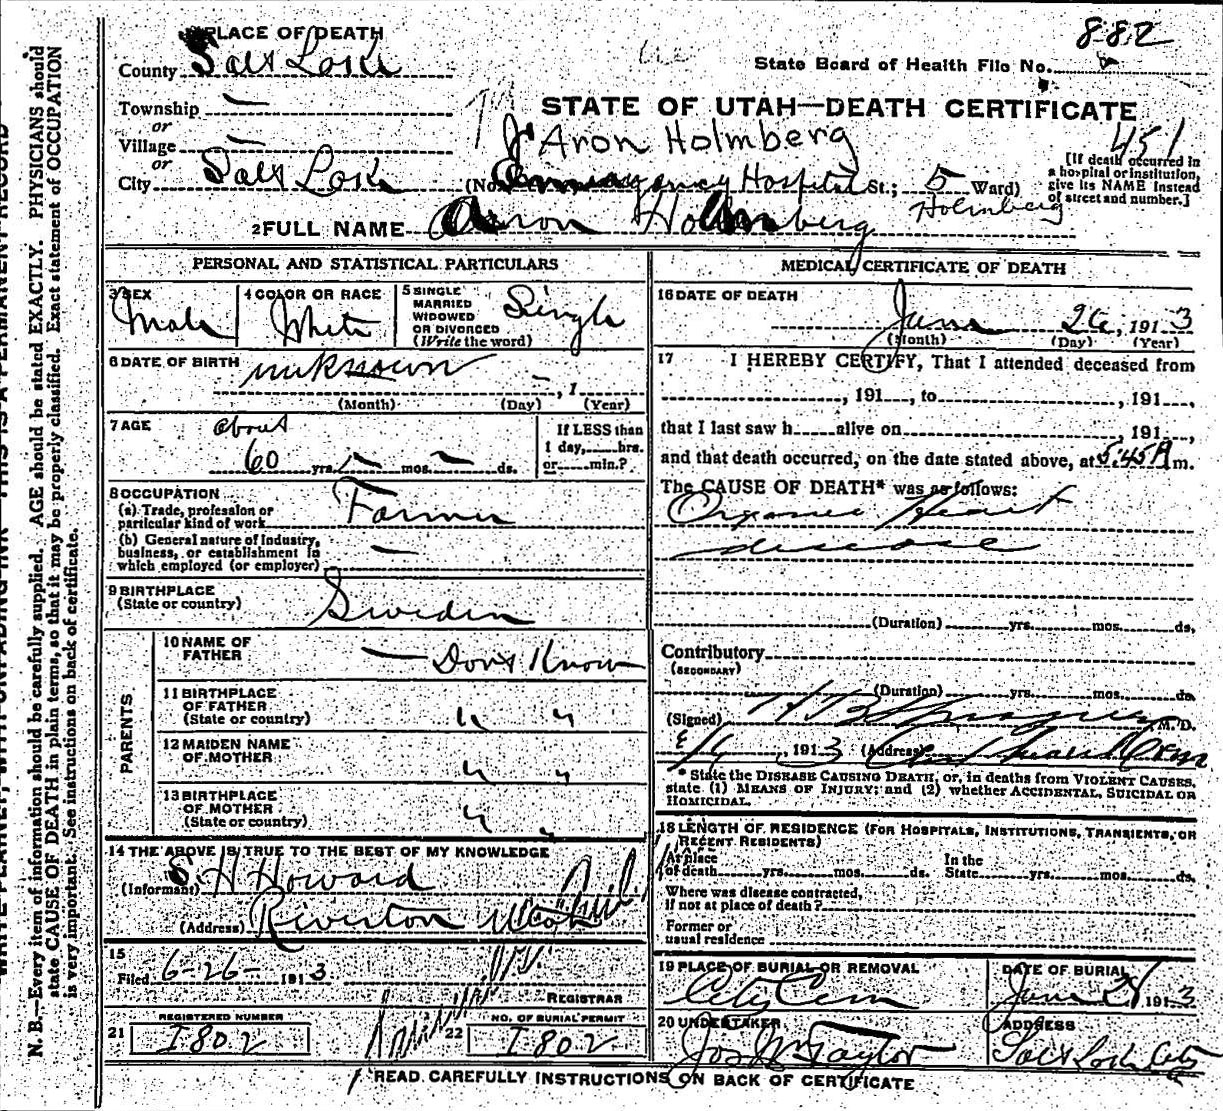 PLACE OF DEATH
882
County Salt Lake
State Board of Health File No.
Township —
STATE OF UTAH—DEATH CERTIFICATE
or
Village —
Aron Holmberg
451
or
City Salt Lake (No. Emmergency Hospital St.; 5 Ward)
[If death occurred in
a hospital or institution,
give its NAME instead
of street and number.]
2 FULL NAME Aaron Holmberg
Holmberg
PERSONAL AND STATISTICAL PARTICULARS
3 SEX
Male
4 COLOR OR RACE
White
5 SINGLE
MARRIED
WIDOWED
OR DIVORCED
(Write the word)
Single
6 DATE OF BIRTH
unknown — , 1
(Month) (Day) (Year)
7 AGE
about
60 yrs. — mos. — ds.
If LESS than
1 day, hrs.
or min.?
8 OCCUPATION
(a) Trade, profession or
particular kind of work Farmer
(b) General nature of industry,
business, or establishment in
which employed (or employer) —
9 BIRTHPLACE
(State or country) Sweden
PARENTS
10 NAME OF
FATHER — Dont Know
11 BIRTHPLACE
OF FATHER
(State or country) " "
12 MAIDEN NAME
OF MOTHER " "
13 BIRTHPLACE
OF MOTHER
(State or country) " "
14 THE ABOVE IS TRUE TO THE BEST OF MY KNOWLEDGE
(Informant) S. H Howard
(Address) Riverton Utah
15
Filed 6-26- 1913
REGISTRAR
REGISTERED NUMBER
21 I802
NO. OF BURIAL PERMIT
22 I802
MEDICAL CERTIFICATE OF DEATH
16 DATE OF DEATH
June 26, 1913
(Month) (Day) (Year)
17 I HEREBY CERTIFY, That I attended deceased from
, 191 , to , 191 ,
that I last saw h alive on , 191 ,
and that death occurred, on the date stated above, at 5:45 A m.
The CAUSE OF DEATH* was as follows:
Organic Heart
disease
(Duration) yrs. mos. ds.
Contributory
(SECONDARY)
(Duration) yrs. mos. ds.
(Signed) M. D.
, 1913 (Address)
* State the DISEASE CAUSING DEATH, or, in deaths from VIOLENT CAUSES,
state (1) MEANS OF INJURY; and (2) whether ACCIDENTAL, SUICIDAL OR
HOMICIDAL.
18 LENGTH OF RESIDENCE (FOR HOSPITALS, INSTITUTIONS, TRANSIENTS, OR
RECENT RESIDENTS)
At place
of death yrs. mos. ds. In the
State yrs. mos. ds.
Where was disease contracted,
if not at place of death?
Former or
usual residence
19 PLACE OF BURIAL OR REMOVAL
City Cem
DATE OF BURIAL
June 28 1913
20 UNDERTAKER
Jos Wm Taylor
ADDRESS
Salt Lake City
READ CAREFULLY INSTRUCTIONS ON BACK OF CERTIFICATE
N. B.—Every item of information should be carefully supplied. AGE should be stated EXACTLY. PHYSICIANS should
state CAUSE OF DEATH in plain terms, so that it may be properly classified. Exact statement of OCCUPATION
is very important. See instructions on back of certificate.